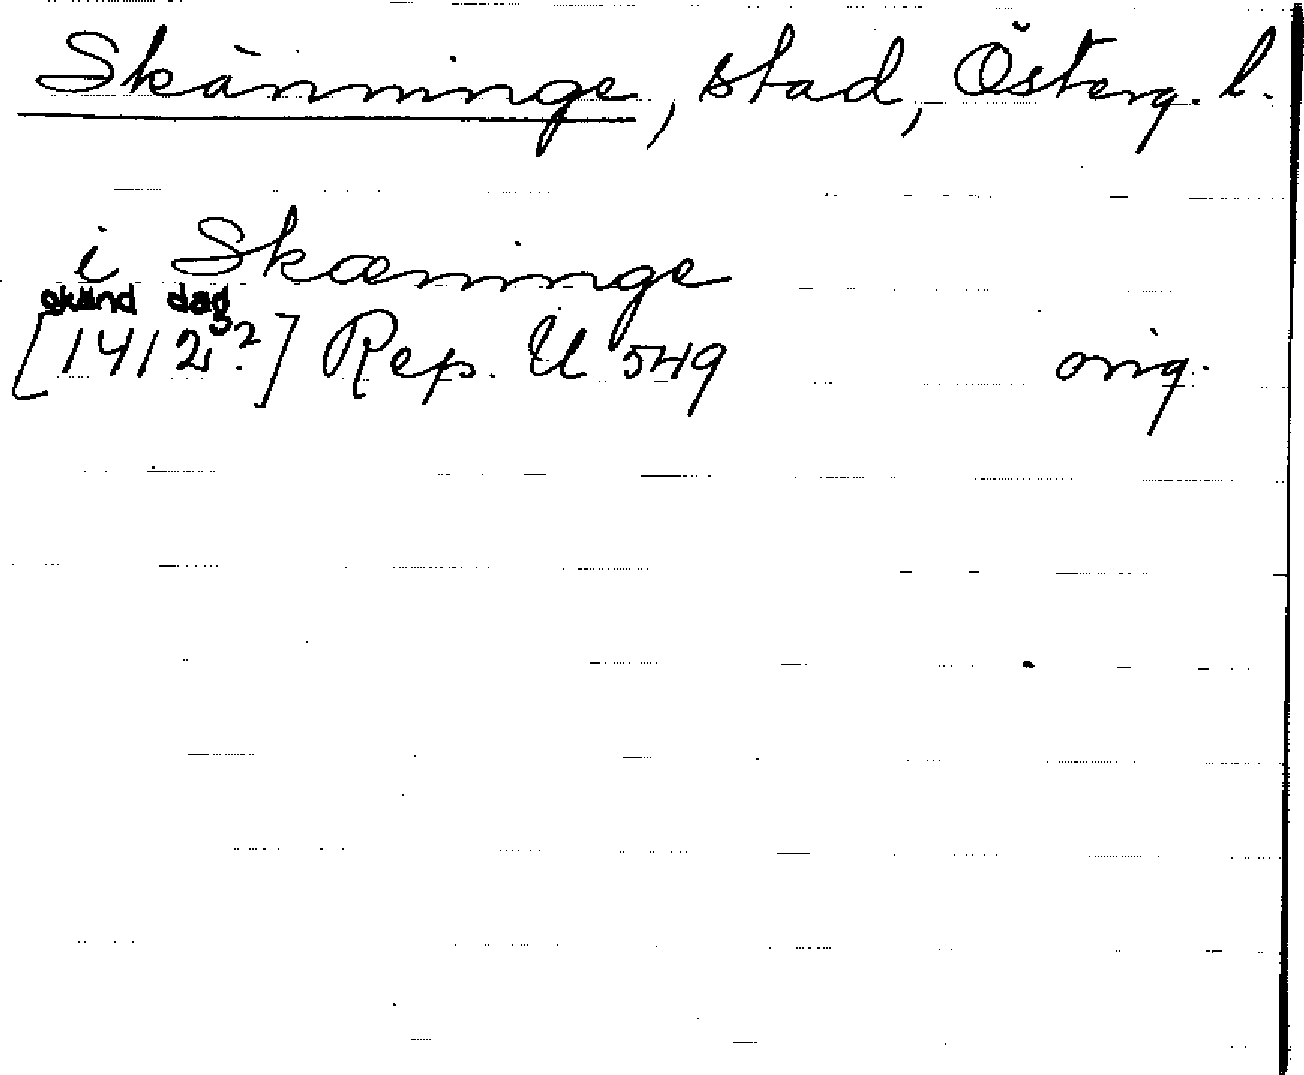 Skänninge, stad, Österg. l.
i Skæninge
okänd dag
[1412?] Rep. U 549 orig.